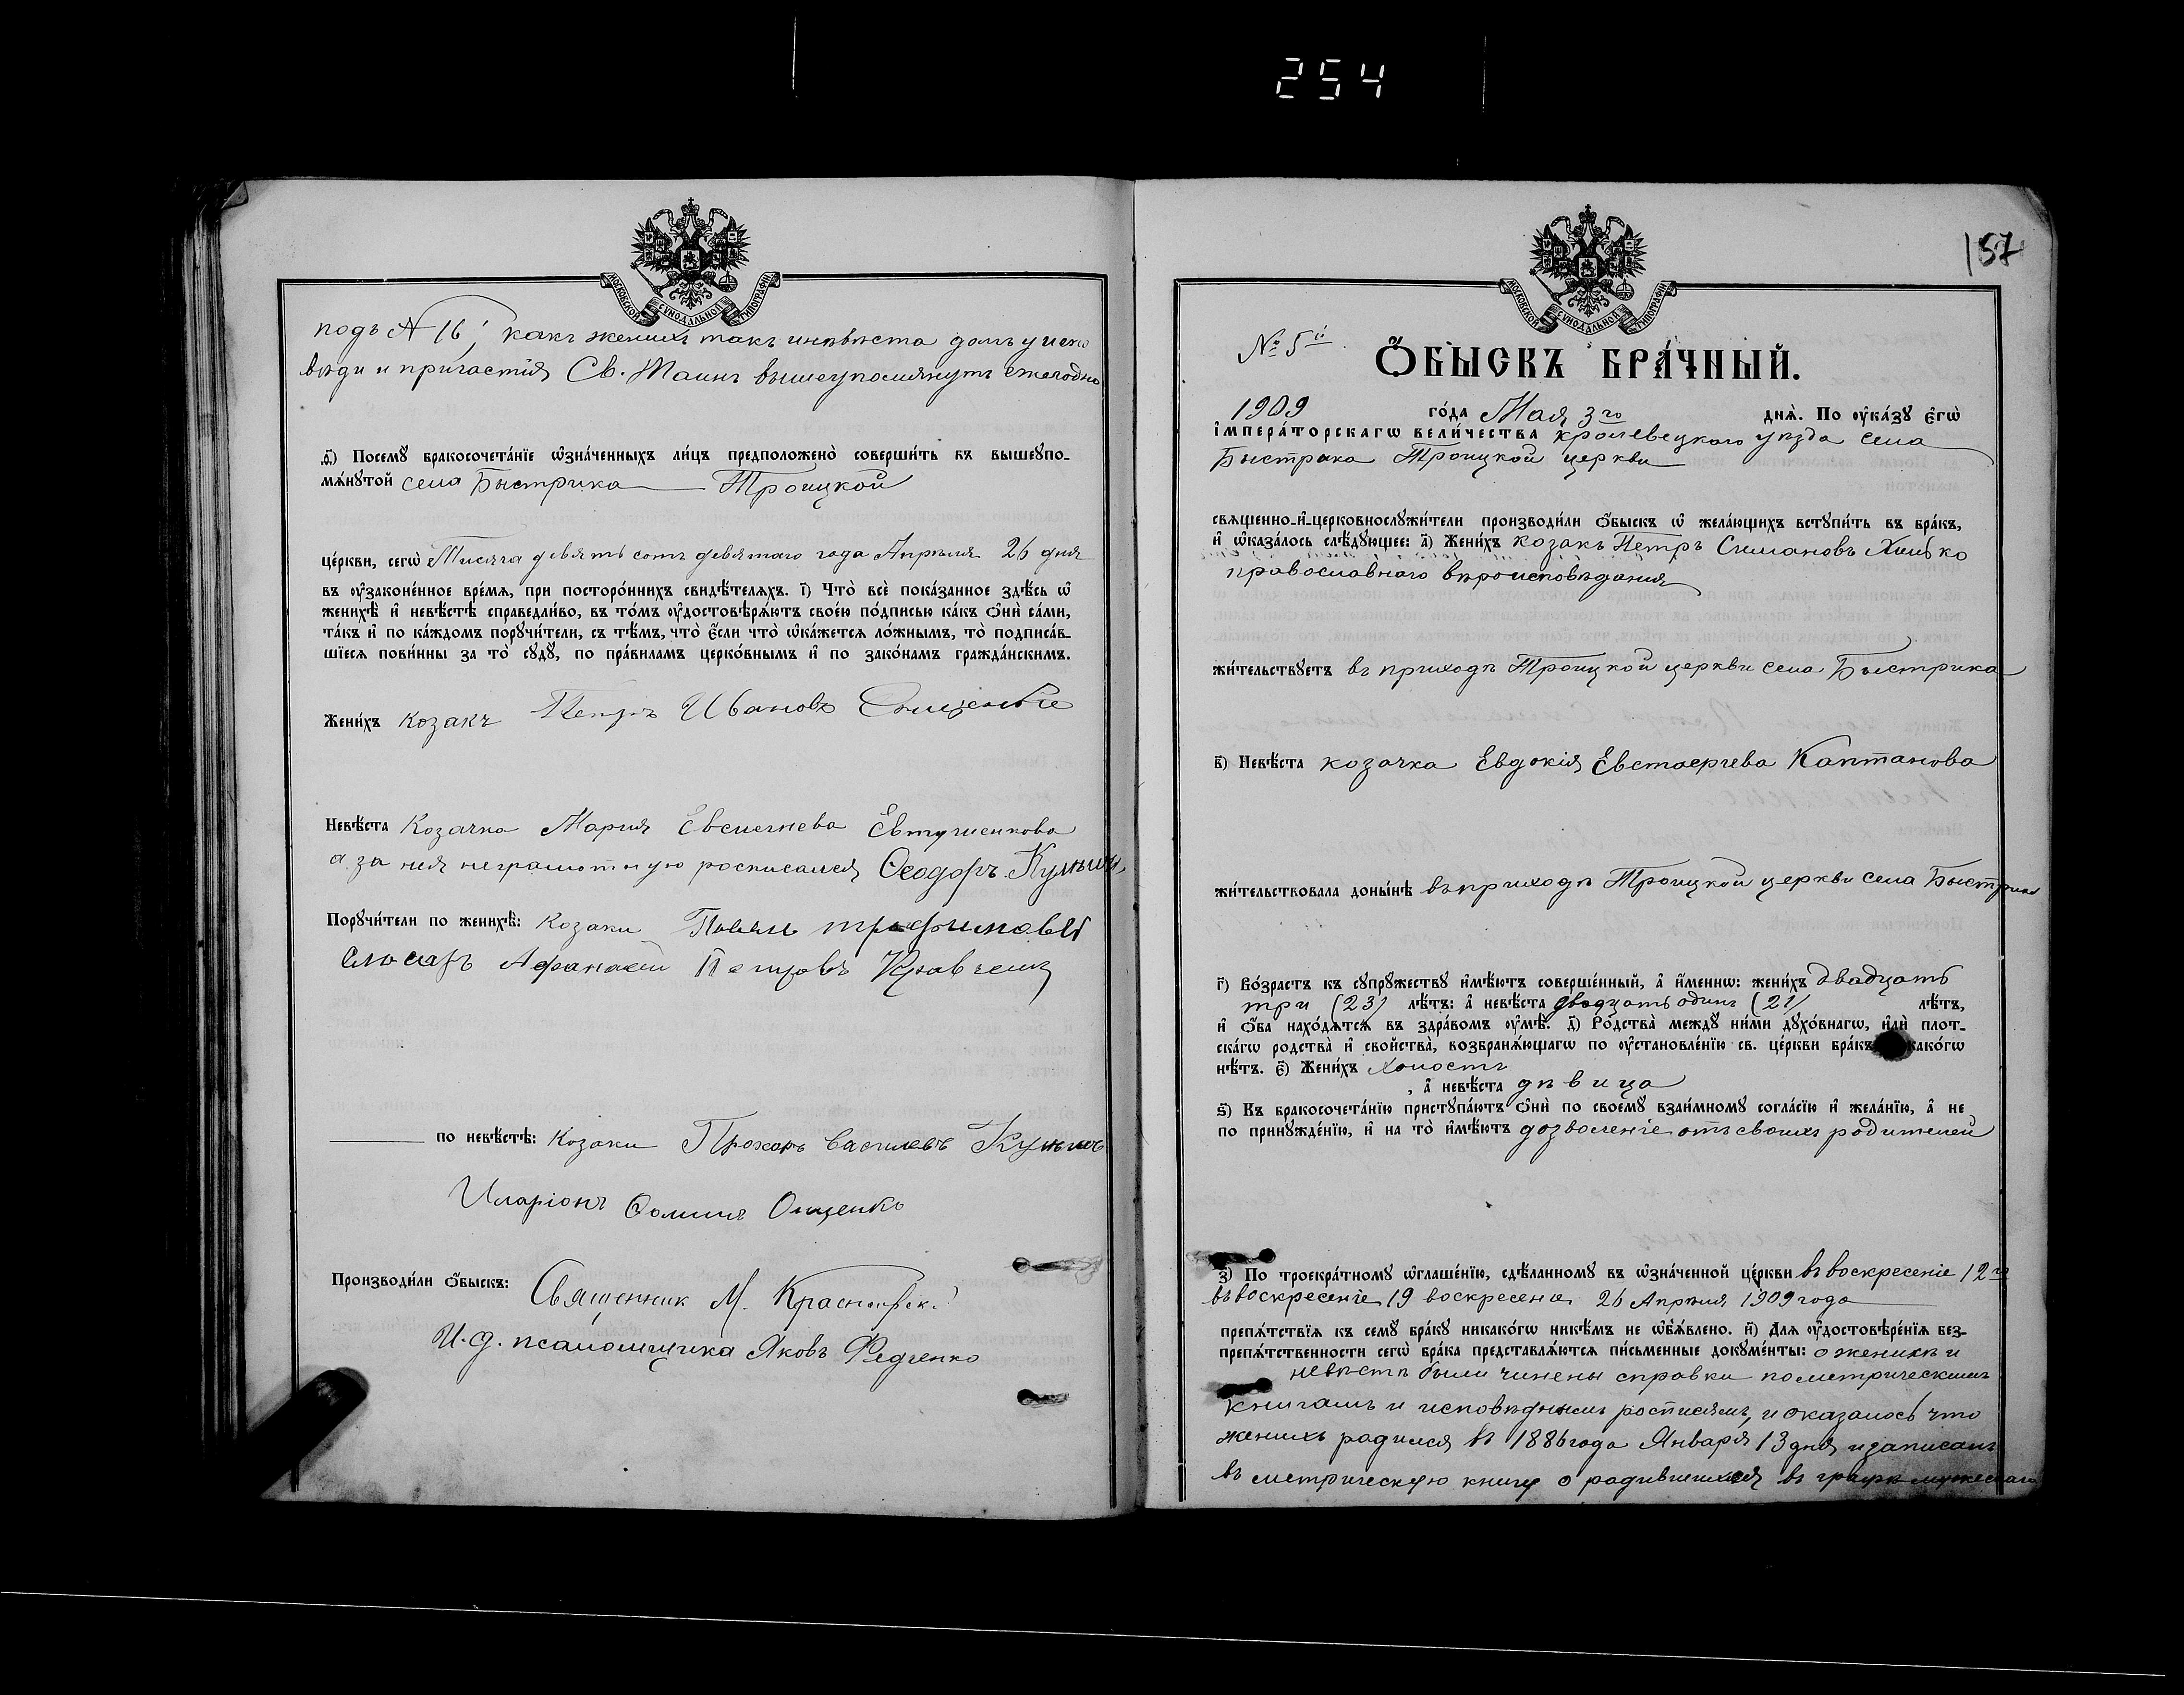 254
МОСКОВСКОЙ СУНОДАЛЬНОЙ ТИПОГРАФІИ
подъ № 16; какъ женихъ такъ и невѣста долгъ у испо
вѣди и причастія Св. Таинъ вышеупомянутъ ежегодно
Ѳ҃) Посемꙋ̀ бракосочета́нїе ѡ҆зна́ченныхъ ли́цъ предположено̀ соверши́ть въ вышеꙋпо-
мѧ́нꙋтой села Быстрика Троицкой
це́ркви, сегѡ̀ Тисяча девять сотъ девятаго года Апрѣля 26 дня
въ ᲂу҆зако́ненное вре́мѧ, при посторо́ннихъ свидѣ́телѧхъ. І҃) Что̀ всѐ пока́занное здѣ́сь ѡ҆
женихѣ̀ и҆ невѣ́стѣ справедли́во, въ то́мъ ᲂу҆достовѣрѧ́ютъ свое́ю по́дписью ка́къ ѻ҆нѝ са́ми,
та́къ и҆ по ка́ждомъ порꙋчи́тели, съ тѣ́мъ, что̀ є҆́сли что̀ ѡ҆ка́жетсѧ ло́жнымъ, то̀ подписа́в-
шїесѧ пови́нны за то̀ сꙋдꙋ̀, по пра́виламъ церко́внымъ и҆ по зако́намъ гражда́нскимъ.
Жени́хъ козакъ Петръ Ивановъ
Невѣ́ста Козачка Мария Евтушенкова
а за нея неграмотную росписался Ѳеодоръ
Порꙋчи́тели по женихѣ̀: Козаки трофимовъ
слюсаръ Афанасій Петровъ Кравченко
по невѣ́стѣ: Козаки Прохоръ Василевъ
Иларіонъ Ѳоминъ Онищенко
Производи́ли ѻ҆́быскъ: Священник М.
И. д. псаломщика Яковъ Федченко
157
МОСКОВСКОЙ СУНОДАЛЬНОЙ ТИПОГРАФІИ
№ 5й
Ѻ҆́БЫСКЪ БРА́ЧНЫЙ.
1909 го́да Мая 3го днѧ̀. По ᲂу҆ка́зꙋ є҆гѡ̀
і҆мпера́торскагѡ вели́чества кролевецкаго уѣзда села
Быстрика Троицкой церкви
свѧщенно-и҆-церковнослꙋжи́тели производи́ли ѻ҆́быскъ ѡ҆ жела́ющихъ встꙋпи́ть въ бра́къ,
и҆ ѡ҆каза́лось слѣ́дꙋющее: а҃) Жени́хъ козакъ Петръ Симановъ
православнаго вѣроисповѣдания
жи́тельствꙋетъ въ приходѣ Троицкой церкви села Быстрика
в҃) Невѣ́ста козачка Евдокія Каптанова
жи́тельствовала доны́нѣ въ приходѣ Троицкой церкви села Быстрика
г҃) Во́зрастъ къ сꙋпрꙋ́жествꙋ и҆мѣ́ютъ соверше́нный, а҆ и҆́меннѡ: жени́хъ двадцать
три (23) лѣ́тъ: а҆ невѣ́ста двадцать одинъ (21) лѣ́тъ,
и҆ ѻ҆́ба нахо́дѧтсѧ въ здра́вомъ ᲂу҆мѣ̀. д҃) Ро́дства̀ междꙋ̀ ни́ми дꙋхо́внагѡ, и҆лѝ плот-
ска́гѡ родства̀ и҆ сво́йства̀, возбранѧ́ющагѡ по ᲂу҆становле́нїю св. це́ркви бра́къ како́гѡ
нѣ́тъ. є҃) Жени́хъ холостъ
, а҆ невѣ́ста дѣвица
ѕ҃) Къ бракосочета́нїю пристꙋпа́ютъ ѻ҆нѝ по своемꙋ̀ взаи́мномꙋ согла́сїю и҆ жела́нїю, а҆ не
по принꙋжде́нїю, и҆ на то̀ и҆мѣ́ютъ дозволеніе отъ своихъ родителей
з҃) По троекра́тномꙋ ѡ҆глаше́нїю, сдѣ́ланномꙋ въ ѡ҆зна́ченной це́ркви въ воскресеніе 12го
въ воскресеніе 19 воскресение 26 Апрѣля 1909 года
препѧ́тствїѧ къ семꙋ̀ бра́кꙋ никако́гѡ никѣ́мъ не ѡ҆б̾ѧ́влено. и҃) Для ᲂу҆достовѣре́нїѧ без-
препѧ́тственности сегѡ̀ бра́ка представлѧ́ютсѧ пи́сьменные докꙋме́нты: о женихѣ и
невѣстѣ были чинены справки по метрическимъ
книгамъ и исповѣднымъ росписямъ, и оказалось что
женихъ родился въ 1886 года Января 13 дня и записанъ
въ метрическую книгу о родившихся въ графѣ мужескаго